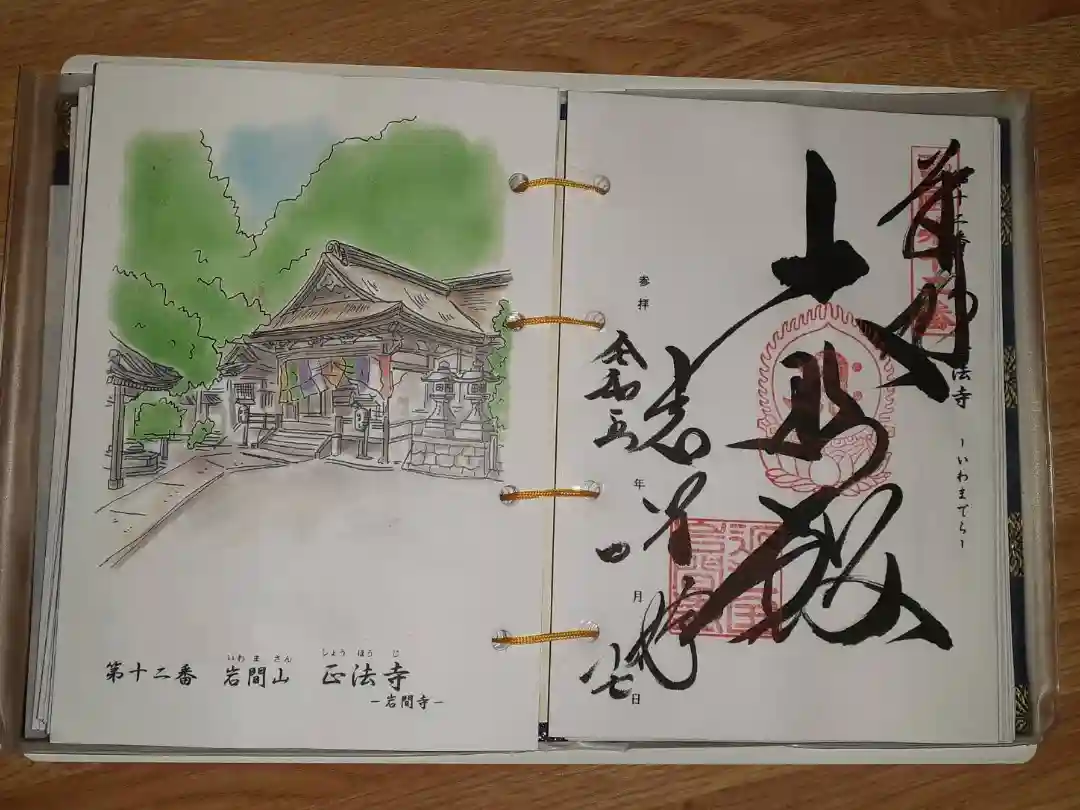 いわまさん　しょうほうじ
第十二番　岩間山　正法寺
－岩間寺－
十二番　法寺　－いわまでら－
奉拝
大悲殿
参拝　令和五年四月廿七日